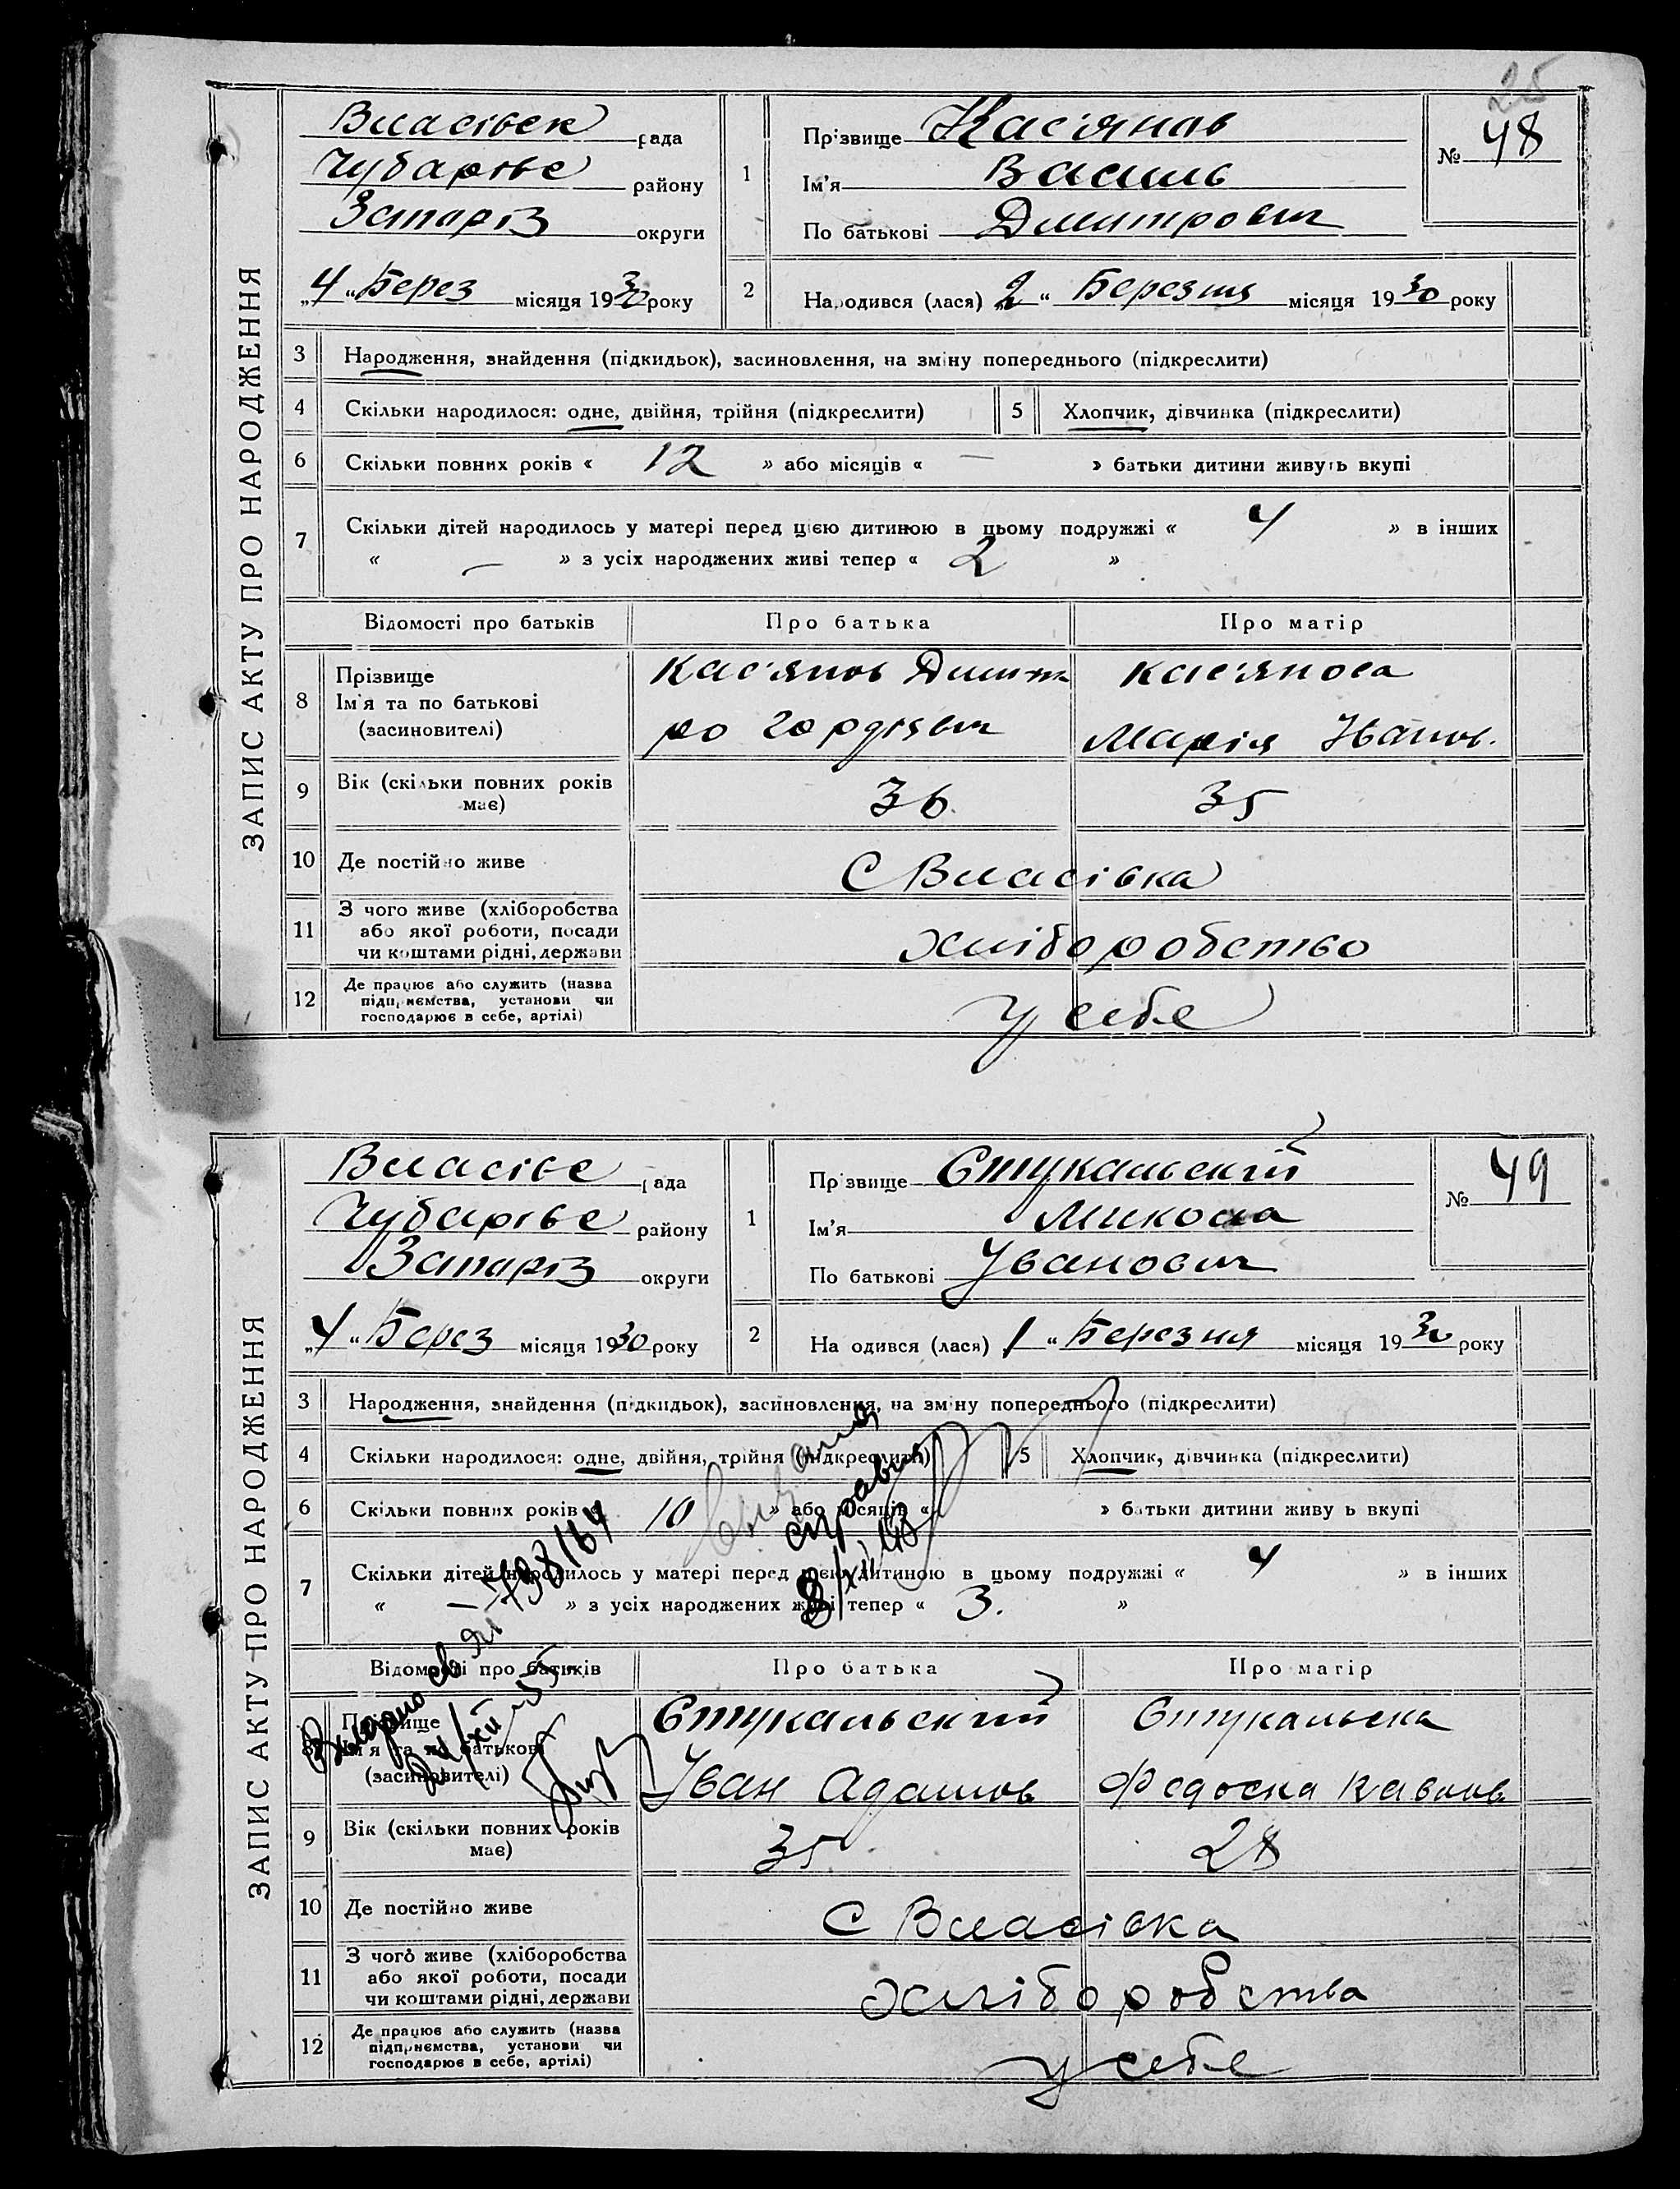 25
ЗАПИС АКТУ ПРО НАРОДЖЕННЯ
Власівск рада
Чубарівс району
Запоріз округи
„4“ Берез місяця 1930 року
1 Прізвище Кас'янов
Ім'я Василь
По батькові Дмитрович
№ 48
2 Народився (лася) „2“ Березня місяця 1930 року
3 Народження, знайдення (підкидьок), засиновлення, на зміну попереднього (підкреслити)
4 Скільки народилося: одне, двійня, трійня (підкреслити) 5 Хлопчик, дівчинка (підкреслити)
6 Скільки повних років « 12 » або місяців « — » батьки дитини живуть вкупі
7 Скільки дітей народилось у матері перед цією дитиною в цьому подружжі « 4 » в інших
« — » з усіх народжених живі тепер « 2 »
Відомості про батьків Про батька Про матір
8 Прізвище
Ім'я та по батькові
(засиновителі)
Кас'янов Дмит
ро Гордієвич
Кас'янова
Марія Іванов.
9 Вік (скільки повних років
має)
36 35
10 Де постійно живе С Власівка
11 З чого живе (хліборобства
або якої роботи, посади
чи коштами рідні, держави
хліборобство
12 Де працює або служить (назва
підприємства, установи чи
господарює в себе, артілі)
у себе
ЗАПИС АКТУ ПРО НАРОДЖЕННЯ
Власівс рада
Чубарівс району
Запоріз округи
„4“ Берез місяця 1930 року
1 Прізвище Стукальский
Ім'я Микола
По батькові Іванович
№ 49
2 Народився (лася) 1 “ Березня місяця 1930 року
3 Народження, знайдення (підкидьок), засиновлення, на зміну попереднього (підкреслити)
4 Скільки народилося: одне, двійня, трійня (підкреслити) 5 Хлопчик, дівчинка (підкреслити)
6 Скільки повних років « 10 » або місяців « » батьки дитини живу ь вкупі
7 Скільки дітей народилось у матері перед цією дитиною в цьому подружжі « 4 » в інших
« — » з усіх народжених живі тепер « 3. »
справка
8/XII 48
Видано св
24/XII 55
Відомості про батьків Про батька Про матір
8 Прізвище
Ім'я та по батькові
(засиновителі)
Стукальский
Іван Адамов
Стукальска
Федоска
9 Вік (скільки повних років
має)
35 28
10 Де постійно живе С Власівка
11 З чого живе (хліборобства
або якої роботи, посади
чи коштами рідні, держави
хліборобства
12 Де працює або служить (назва
підприємства, установи чи
господарює в себе, артілі)
у себе